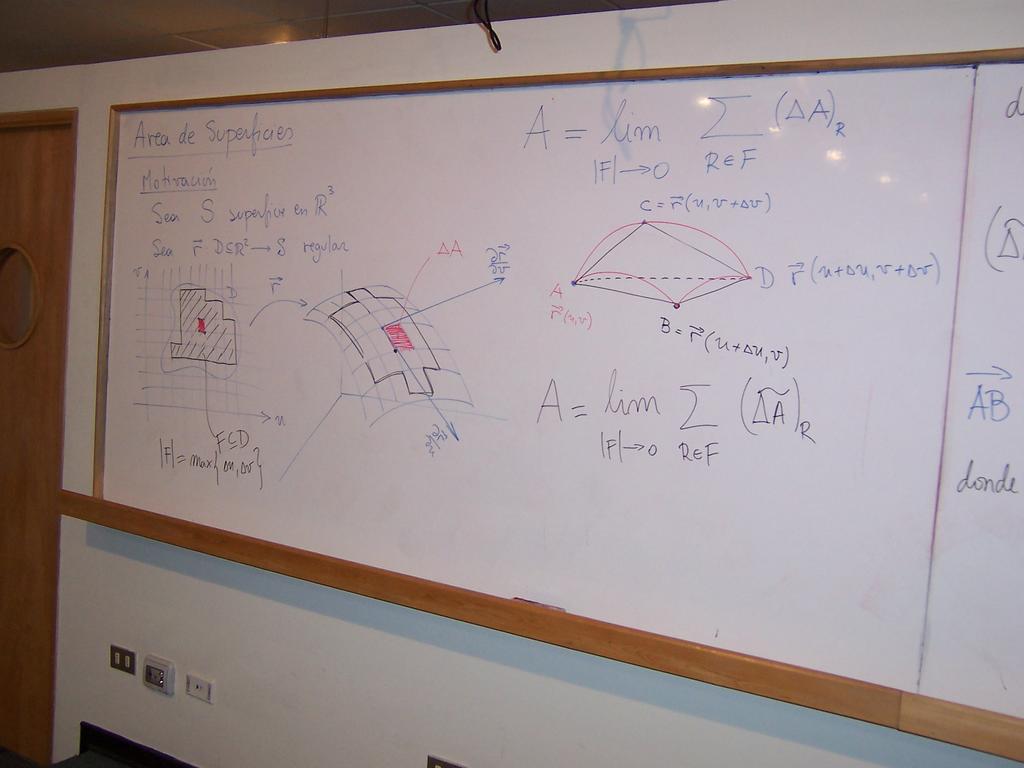 Area de Superficies
Motivación
Sea S superficie en ℝ³
Sea r⃗ D⊆ℝ²→S regular
v
D
r⃗
u
F⊆D
|F| = max{Δu, Δv}
ΔA
∂r⃗/∂v
∂r⃗/∂u
A = lim Σ (ΔA)_R
|F|→0 R∈F
C = r⃗(u, v+Δv)
A
r⃗(u,v)
D r⃗(u+Δu, v+Δv)
B = r⃗(u+Δu, v)
A = lim Σ (Δ̃A)_R
|F|→0 R∈F
AB⃗
donde